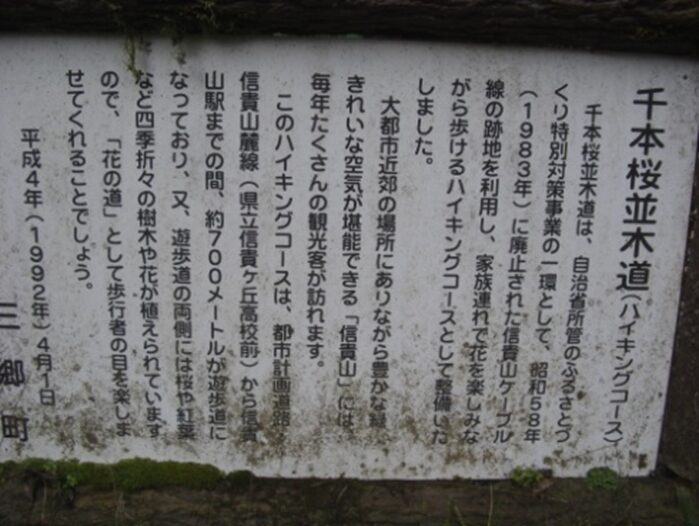 千本桜並木道(ハイキングコース)
千本桜並木道は、自治省所管のふるさとづ
くり特別対策事業の一環として、昭和58年
(1983年)に廃止された信貴山ケーブル
線の跡地を利用し、家族連れで花を楽しみな
がら歩けるハイキングコースとして整備いた
しました。
大都市近郊の場所にありながら豊かな緑、
きれいな空気が堪能できる「信貴山」には、
毎年たくさんの観光客が訪れます。
このハイキングコースは、都市計画道路
信貴山麓線(県立信貴ヶ丘高校前)から信貴
山駅までの間、約700メートルが遊歩道に
なっており、又、遊歩道の両側には桜や紅葉
など四季折々の樹木や花が植えられています
ので、「花の道」として歩行者の目を楽しま
せてくれることでしょう。
平成4年(1992年)4月1日
三郷町